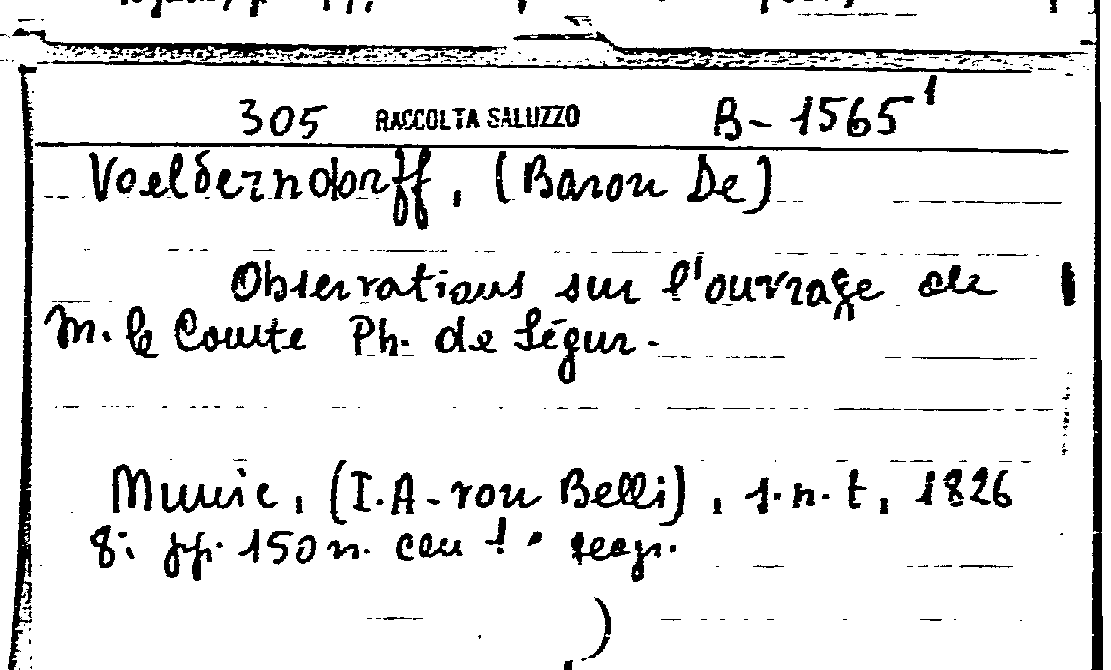 305 RACCOLTA SALUZZO B-1565¹
Voelderndorff, (Baron De)
Observations sur l'ouvrage de
M. le Comte Ph. de Ségur.
Munic, (I.A-von Belli), s.n.t, 1826
8: pp. 150 n. con